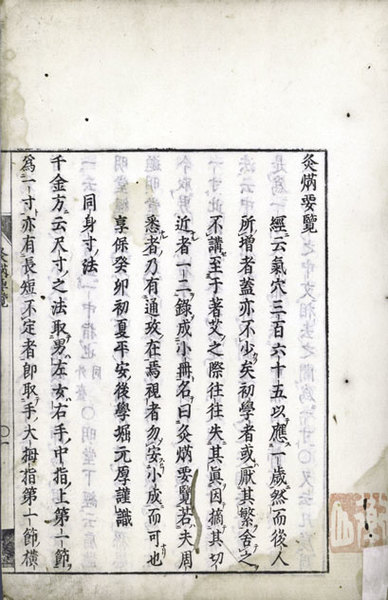 灸焫要覽
經云氣穴三百六十五以應一歲然而後人
所增者蓋亦不少矣初學者或厭其繁舍之
不講至于著艾之際往往失其眞因摘其切
近者一二錄成小冊名曰灸焫要覽若夫周
悉者乃有通攷在焉視者勿安小成而可也
享保癸卯初夏平安後學堀元厚謹識
同身寸法
千金方云尺寸之法取男左女右手中指上第一節
爲一寸亦有長短不定者即取手大拇指第一節橫